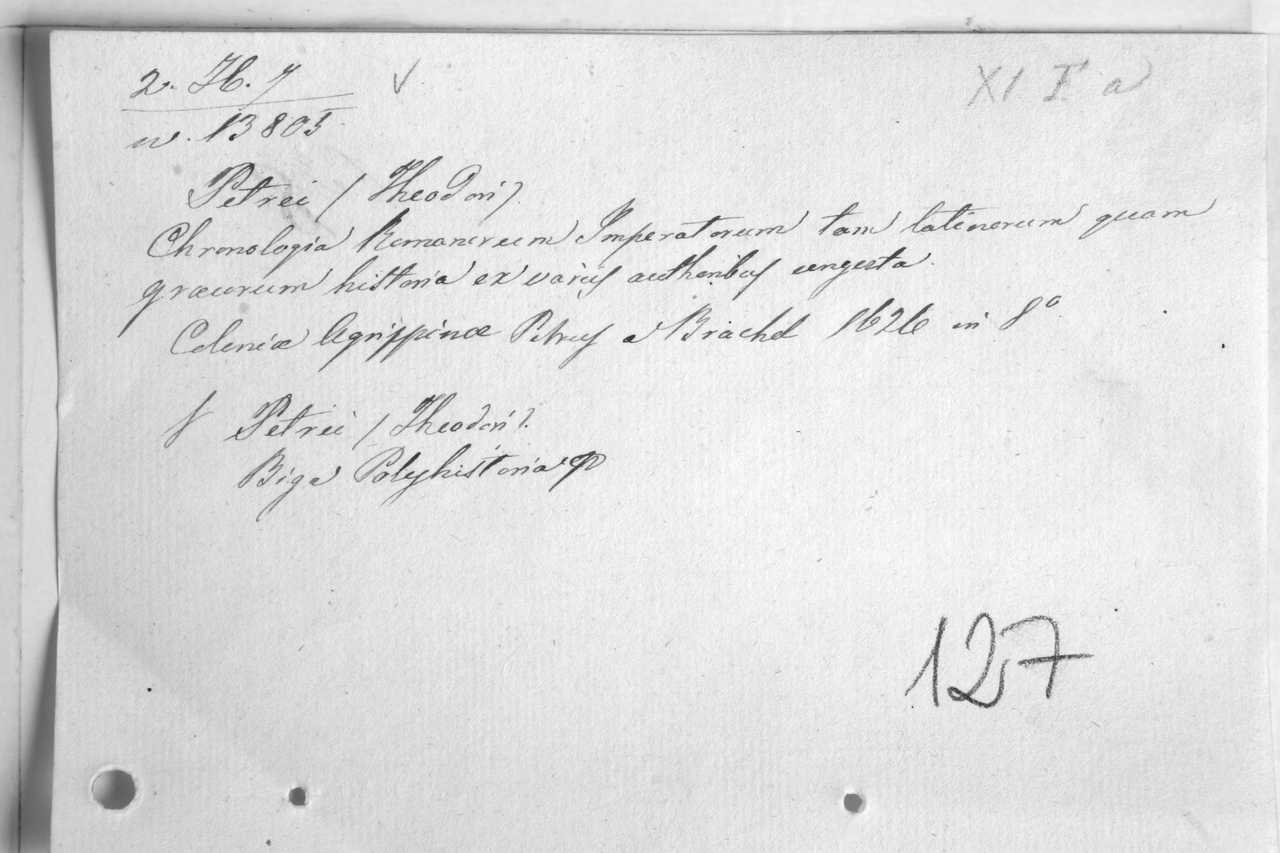 2. H. 7 √ XI F a
n. 13805
Petrei / Theodori /.
Chronologia Romanorum Imperatorum tam latinorum quam
græcorum historia ex variis authoribus congesta.
Coloniæ Agrippinæ Petrus a Brachel 1626 in 8º
f Petrei / Theodori /.
Biga Polyhistoria
127